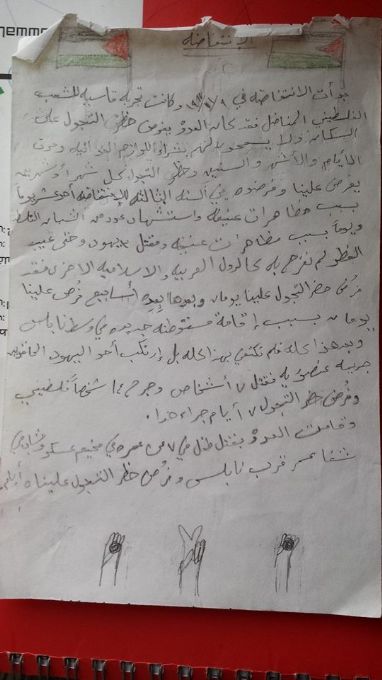 nemme
الإنتفاضة
بدأت الانتفاضه في ٩/١٢/ وكانت تجربه قاسيه للشعب
الفلسطيني المناضل فقد كان العدو يفرض حظر التجول على
السكان ولا يسمح لهم بشراء اللوازم الغذائيه ومرت
الأيام والأشهر والسنين وحظر التجول كل شهر أو شهرين
يفرض علينا وفرضوه في السنه الثالثه للإنتفاضه أحد عشر يوماً
بسبب مظاهرات عنيفه واستشهاد عدد من الشباب
ويوماً بسبب مظاهرات عنيفه ومقتل يهود وحتى عيد
الفطر لم نفرح به كالدول العربيه والاسلاميه الاخرى فقد
فرض حظر التجول علينا يومان وبعدها بعدة أسابيع فرض علينا
يومان بسبب إقامة مستوطنه جديده في وسط نابلس
وبعد هذا كله فلم نكتفي بهذا كله بل إرتكب أحد اليهود الحاقدين
جريمة عنصريه فقتل ٧ أشخاص وجرح ١٤ شخصاً فلسطيني
وفُرض حظر التجول ٧ أيام جراء هذا.
وقامت العدو بقتل طفل في ٧ من عمره في مخيم عسكر
قرب نابلس وفُرض حظر التجول علينا ٥ أيام